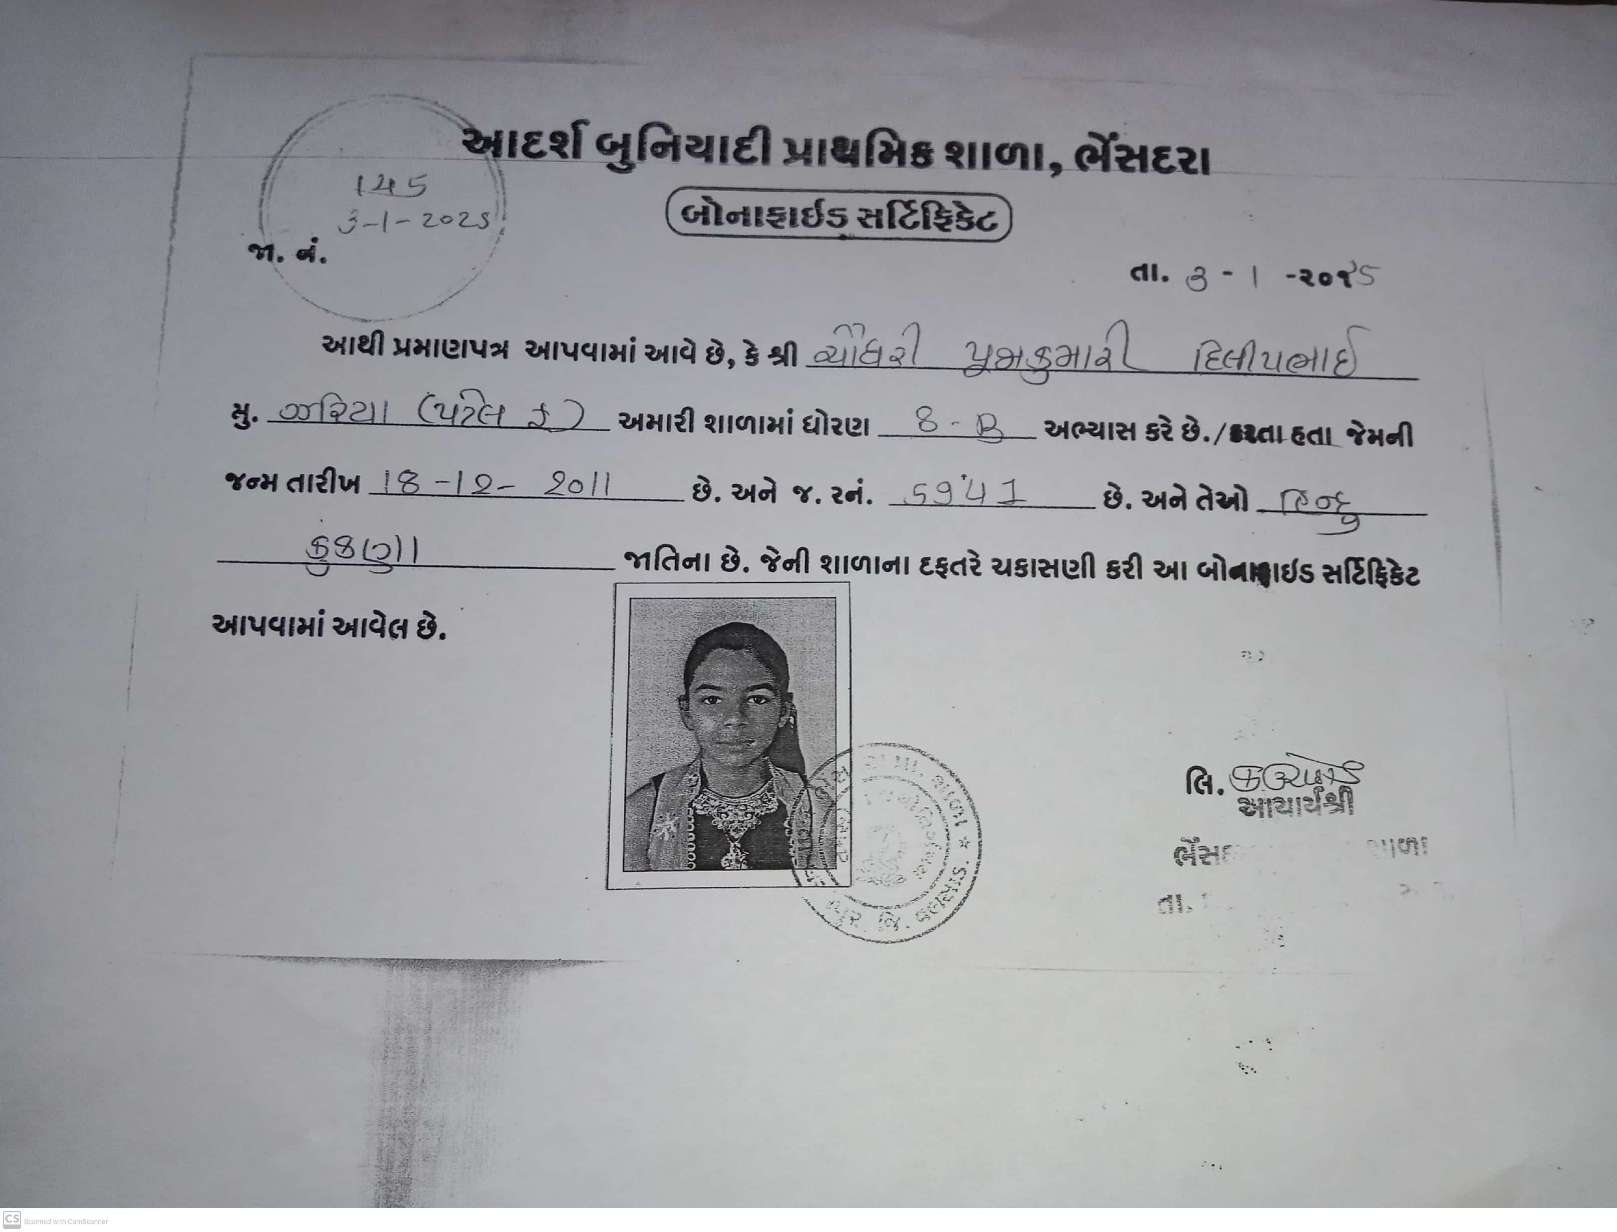 આદર્શ બુનિયાદી પ્રાથમિક શાળા, ભેંસદરા
145
3-1-2025
બોનાફાઈડ સર્ટિફિકેટ
જા. નં.
તા. ૩ - 1 -૨૦૧૫
આથી પ્રમાણપત્ર આપવામાં આવે છે, કે શ્રી ચૌધરી પૂજાકુમારી દિલીપભાઈ
મુ. ઝરિયા (પટેલ ફ) અમારી શાળામાં ધોરણ 8-B અભ્યાસ કરે છે./કરતા હતા જેમની
જન્મ તારીખ 18-12-2011 છે. અને જ. રનં. 5941 છે. અને તેઓ હિન્દુ
કુકણા જાતિના છે. જેની શાળાના દફતરે ચકાસણી કરી આ બોનાફાઇડ સર્ટિફિકેટ
આપવામાં આવેલ છે.
લિ.
આચાર્યશ્રી
શાળા
તા.
જિ. વલસાડ
CS Scanned with CamScanner